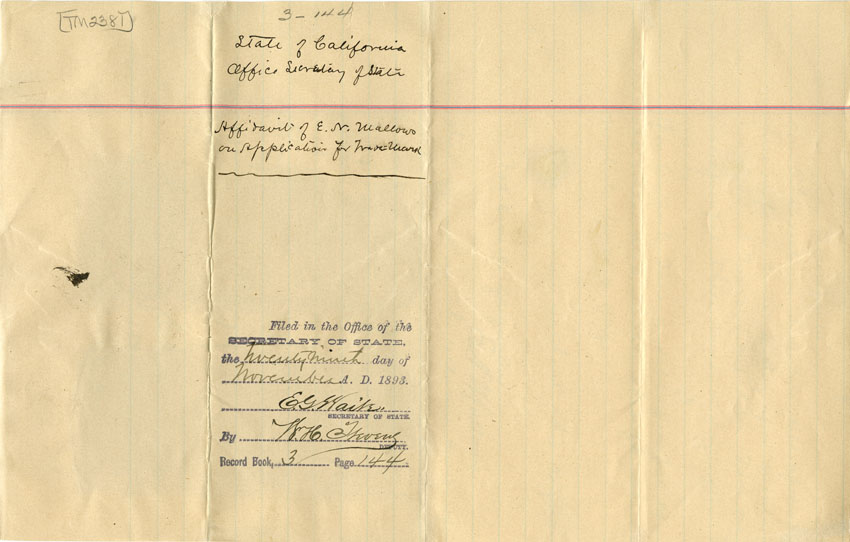 [TM2381]
3-144
State of California
Office Secretary of State
Affidavit of E. N. Mallows
on Application for Trade Mark
Filed in the Office of the
SECRETARY OF STATE,
the Twenty ninth day of
November A. D. 1893.
E G Waite
SECRETARY OF STATE.
By W. H.
DEPUTY.
Record Book, 3 Page 144